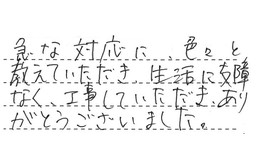 急な対応に、色々と
教えていただき、生活に支障
なく、工事していただき、あり
がとうございました。